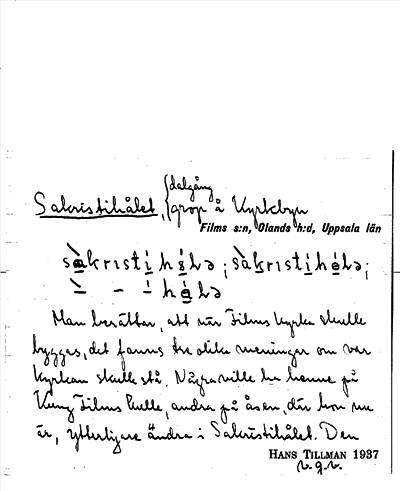 Sakristihålet, {dalgång
{grop å Kyrkbyn
Films s:n, Olands h:d, Uppsala län
sàkristí hålə; sàkristíhålə;
\ – í hålə
Man berättar, att när Films kyrka skulle
byggas, det fanns tre olika meningar om var
kyrkan skulle stå. Några ville ha henne på
Kung Films kulle, andra på åsen, där hon nu
är, ytterligare andra i Sakristihålet. Den
HANS TILLMAN 1937
v.g.v.